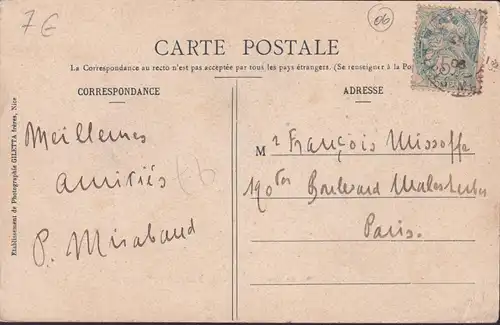 7 €
06
CARTE POSTALE
La Correspondance au recto n'est pas acceptée par tous les pays étrangers. (Se renseigner à la Po
CORRESPONDANCE
ADRESSE
Etablissement de Photographie GILETTA frères, Nice
Meilleures
amitiés
P. Mirabaud
Mr François Missoffe
190 Boulevard Malesherbes
Paris.